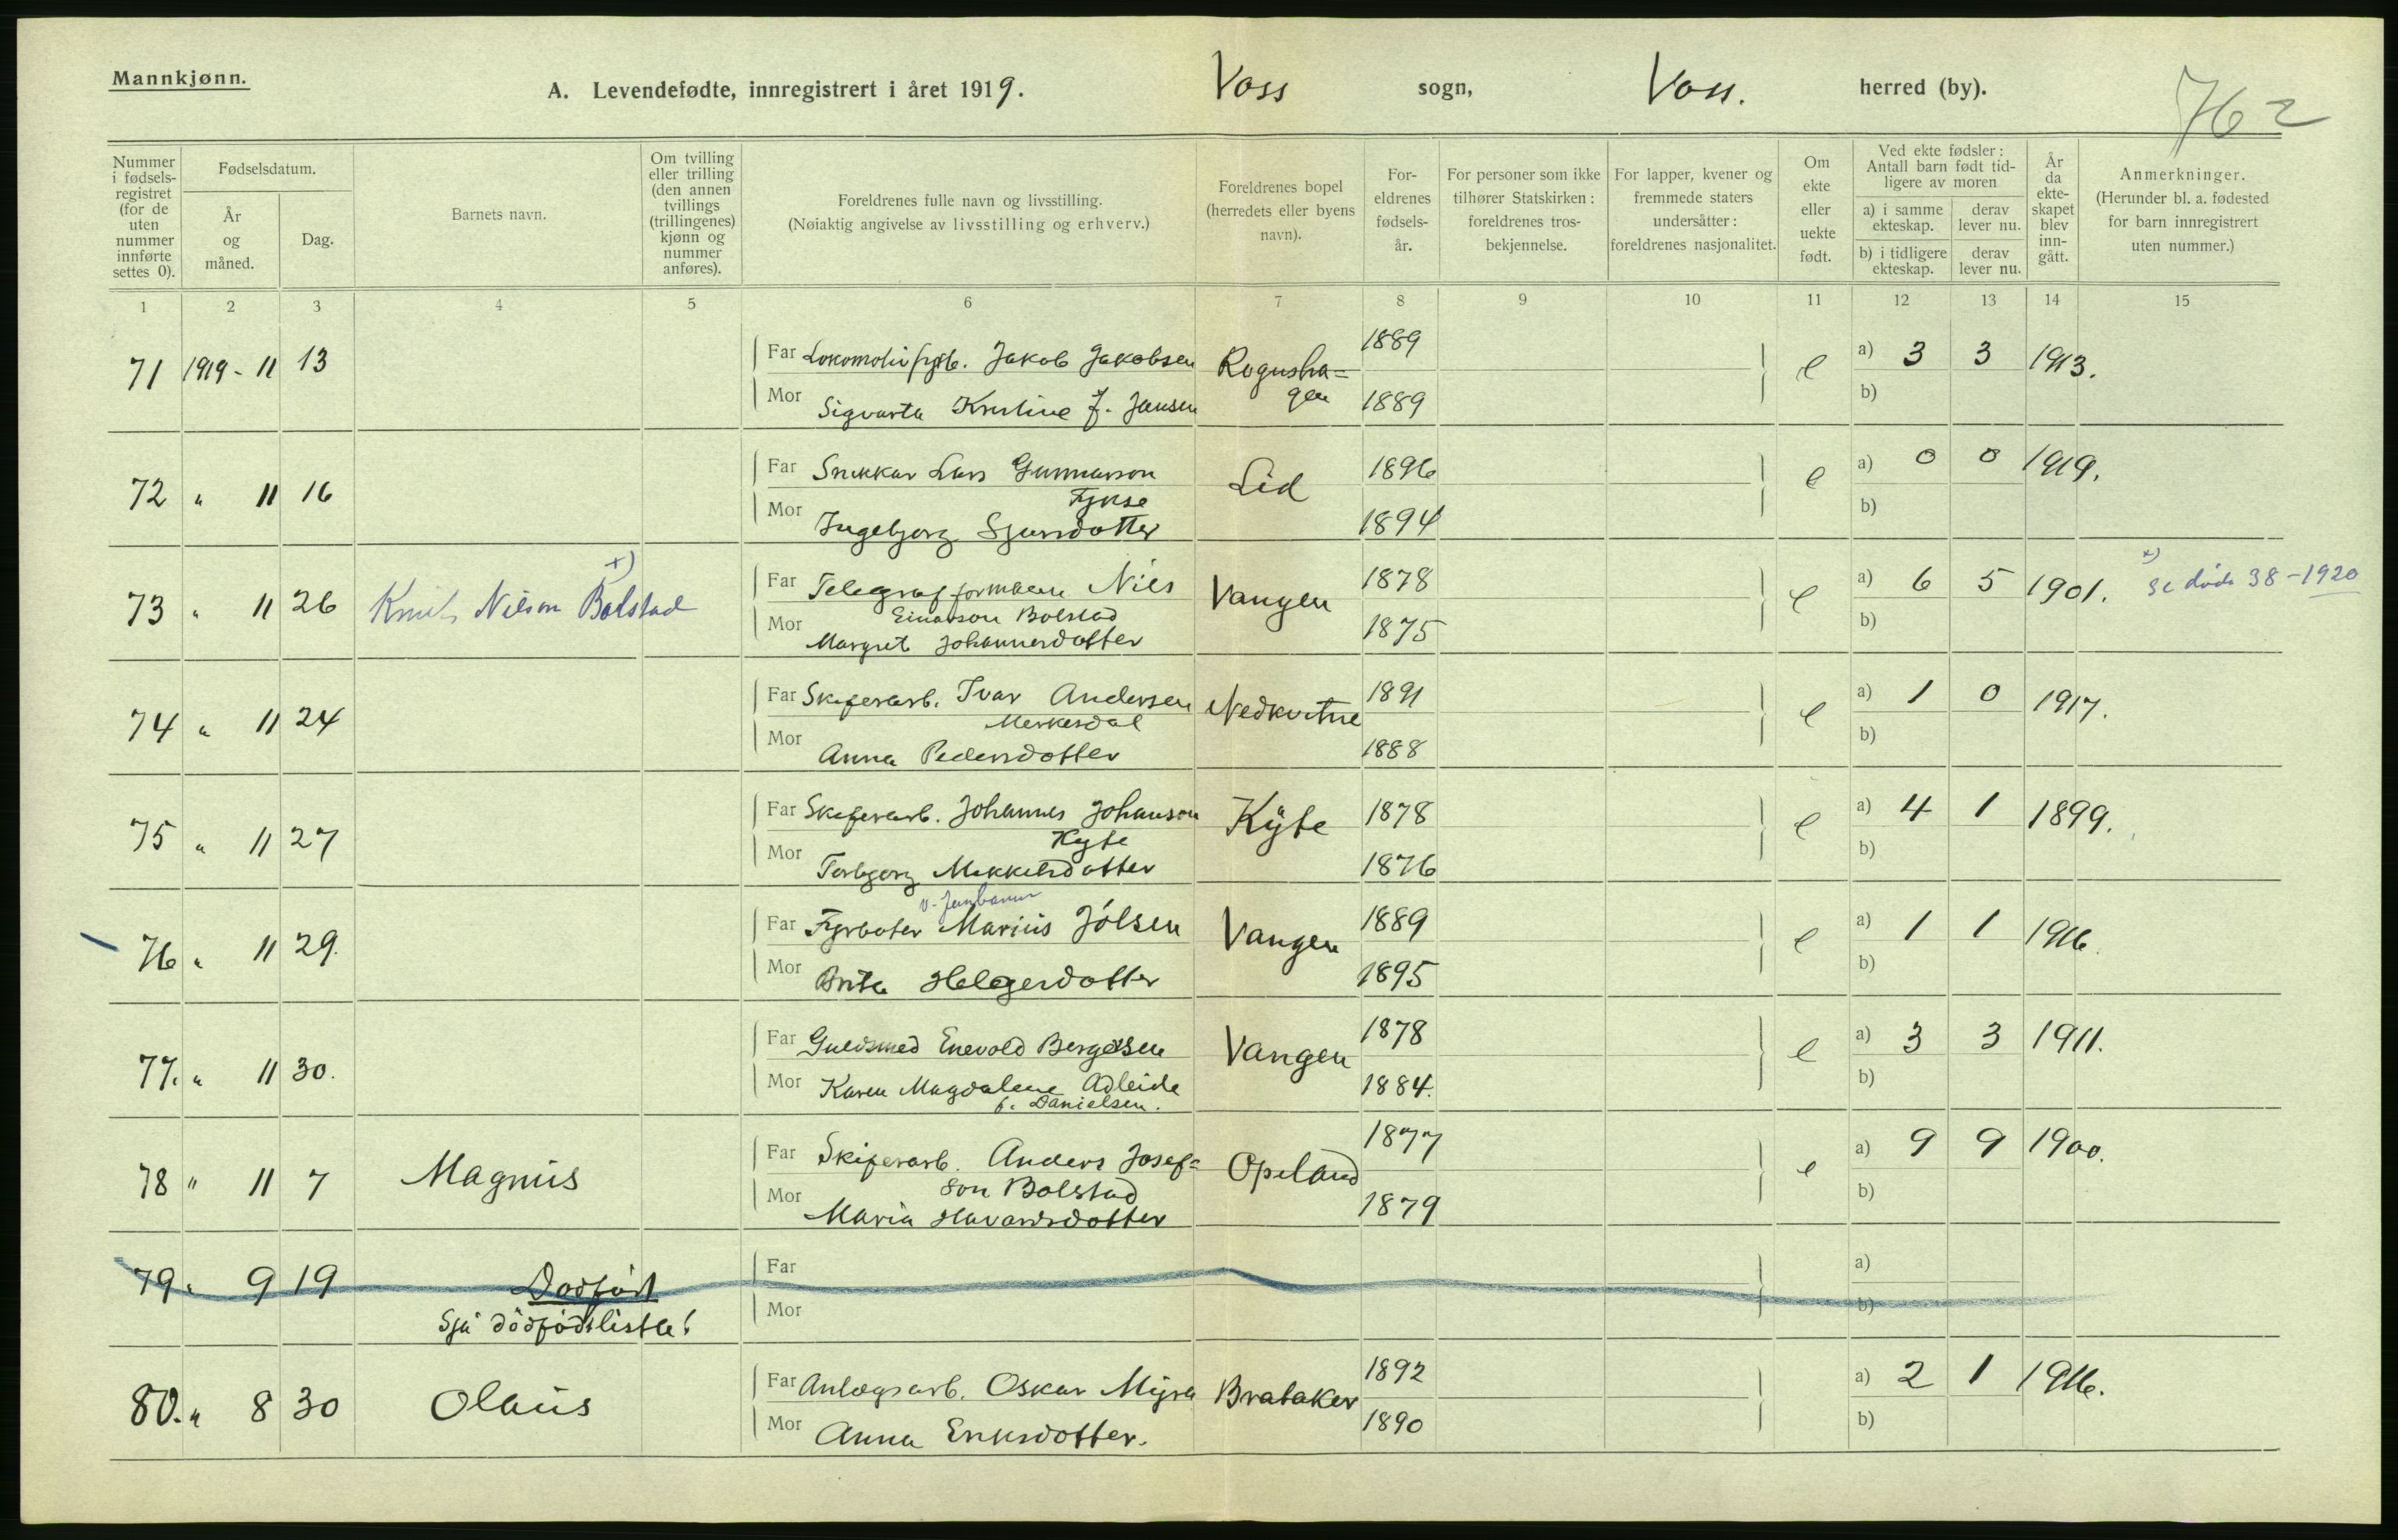 Mannkjønn.
A. Levendefødte, innregistrert i året 1919.
Voss sogn, Voss. herred (by).
762
Nummer i fødsels-registret (for de uten nummer innførte settes 0).
Fødselsdatum.
År og måned.
Dag.
Barnets navn.
Om tvilling eller trilling (den annen tvillings (trillingenes) kjønn og nummer anføres).
Foreldrenes fulle navn og livsstilling.
(Nøiaktig angivelse av livsstilling og erhverv.)
Foreldrenes bopel (herredets eller byens navn).
For-eldrenes fødsels-år.
For personer som ikke tilhører Statskirken: foreldrenes tros-bekjennelse.
For lapper, kvener og fremmede staters undersåtter: foreldrenes nasjonalitet.
Om ekte eller uekte født.
Ved ekte fødsler: Antall barn født tid-ligere av moren
a) i samme ekteskap.
derav lever nu.
b) i tidligere ekteskap.
derav lever nu.
År da ekte-skapet blev inn-gått.
Anmerkninger.
(Herunder bl. a. fødested for barn innregistrert uten nummer.)
1 2 3 4 5 6 7 8 9 10 11 12 13 14 15
71 1919 - 11 13 Far Jakob Jakobsen 1889 e a) 3 3 1913.
Mor Sigvarta Kristine f. Jansen 1889 b)
72 " 11 16 Far Snikkar Lars Gunnarson Lid 1896 e a) 0 0 1919.
Fykse
Mor Ingebjorg Sjursdotter 1894 b)
73 " 11 26 Knut Nilson Bolstad x) Far Telegrafformann Nils Vangen 1878 e a) 6 5 1901. x) se døde 38-1920
Einarson Bolstad
Mor Margret Johannesdotter 1875 b)
74 " 11 24 Far Skiferarb. Ivar Andersen Nedkvitne 1891 e a) 1 0 1917.
Merkesdal
Mor Anna Pedersdotter 1888 b)
75 " 11 27 Far Skiferarb. Johannes Johanson Kyte 1878 e a) 4 1 1899.
Kyte
Mor Torbjorg Mikkelsdotter 1876 b)
v. Jernbanen
76 " 11 29. Far Fyrbøter Marius Jólsen Vangen 1889 e a) 1 1 1916.
Mor Brita Helgesdotter 1895 b)
77. " 11 30. Far Gullsmed Enevold Bergersen Vangen 1878 e a) 3 3 1911.
Mor Karen Magdalene Adleide 1884. b)
f. Danielsen.
78 " 11 7 Magnus Far Skiferarb. Anders Josef= Opeland 1877 e a) 9 9 1900.
son Bolstad
Mor Maria Havardsdotter 1879 b)
79 " 9 19 Dødfødt Far a)
Sjå dødfødsliste! Mor b)
80. " 8 30 Olaus Far Anlegsarb. Oskar Myra Brataker 1892 a) 2 1 1916.
Mor Anna Eriksdotter. 1890 b)